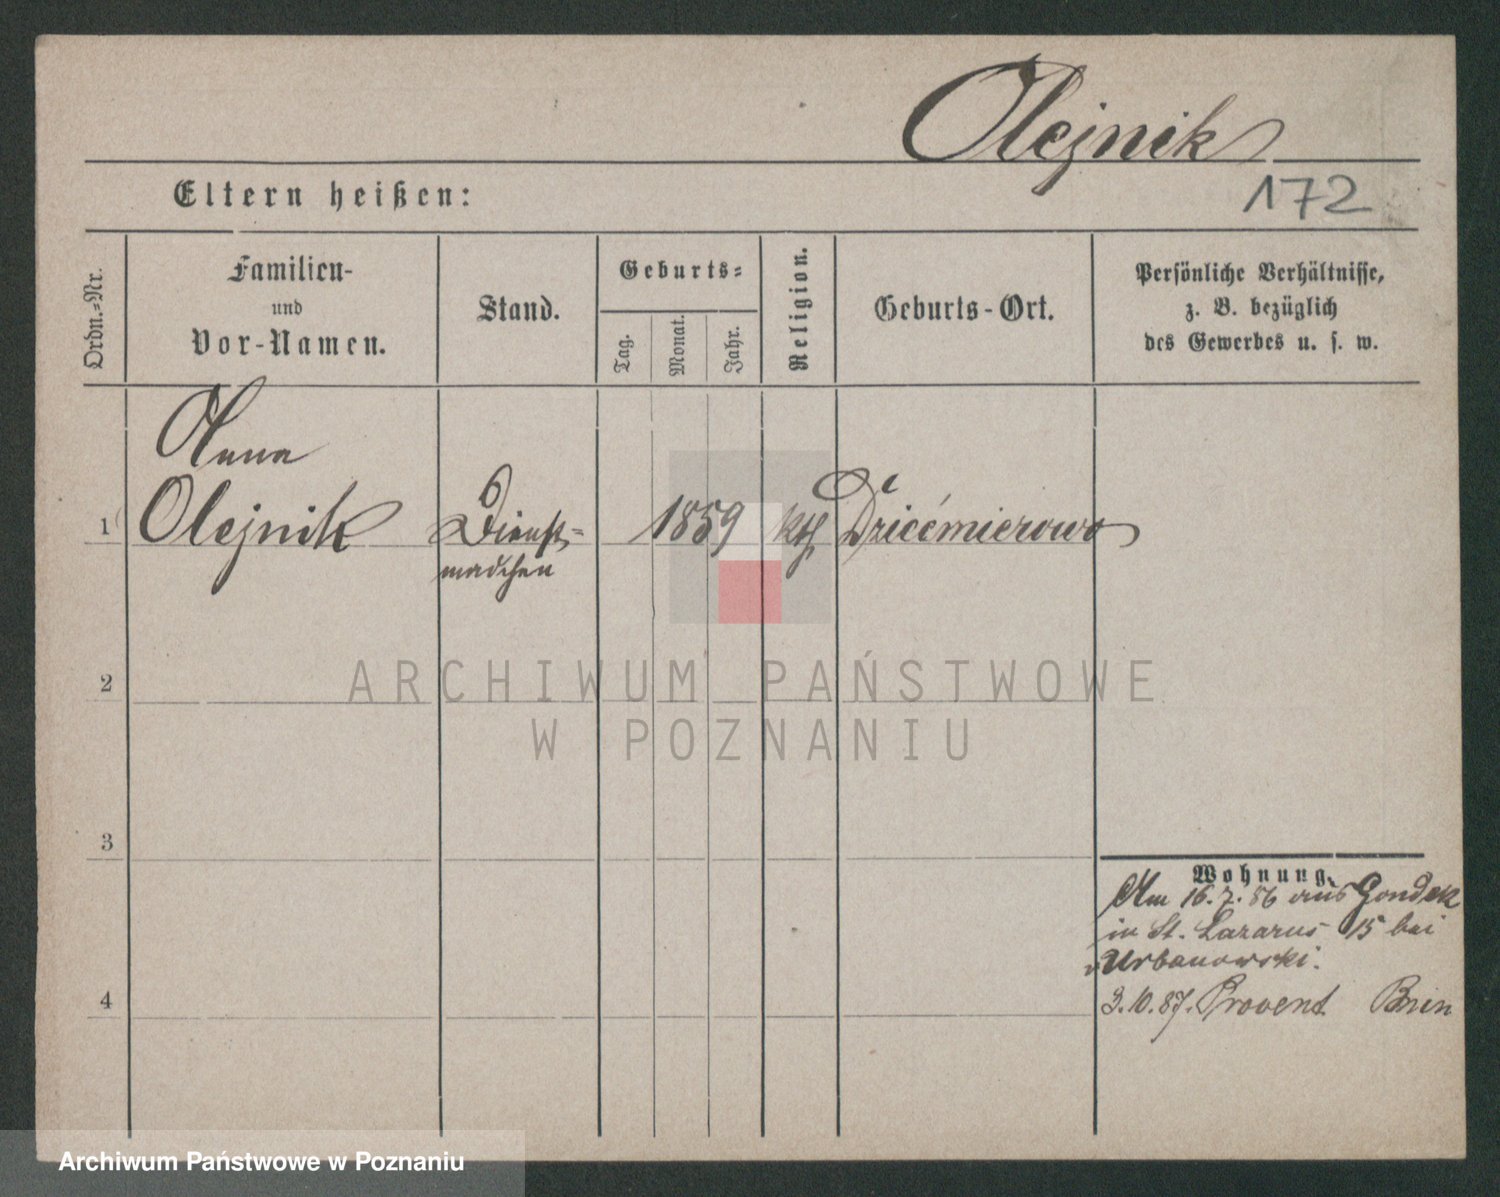 Olejnik
Eltern heißen:
172
Ordn.-Nr.
Familien-
und
Vor-Namen.
Stand.
Geburts-
Tag.
Monat.
Jahr.
Religion.
Geburts-Ort.
Persönliche Verhältnisse,
z. B. bezüglich
des Gewerbes u. s. w.
Anna
1 Olejnik Dienst- 1859 kth. Dziećmierowo
madchen
2
ARCHIWUM PAŃSTWOWE
W POZNANIU
3
Wohnung.
Am 16.7.86 aus Gondek
in St. Lazarus 15 bei
v Urbanowski.
4
3.10.87. Provent Bnin
Archiwum Państwowe w Poznaniu